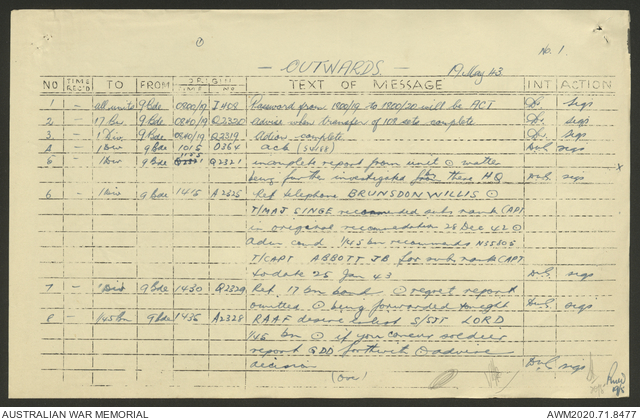 No. 1.
OUTWARDS 19 May 43
NO TIME REC'D TO FROM ORIGIN TEXT OF MESSAGE INT ACTION
NO.
1 - all units 9 Bde 0800/19 Password from 1800/19 to 1800/20 will be ACT sigs
2 - 17 Bn 9 Bde 0840/19 Q2320 Advise when transfer of 108 sets complete sigs
3 - 1 Div 9 Bde 0840/19 Q2319 Action complete sigs
4 - 1 Div 9 Bde 1015 O364 ack sigs
5 - 1 Div 9 Bde Q2321 incomplete report from unit matter
being further investigated this HQ sigs
x
6 - 1 Div 9 Bde 1415 A2625 Ref telephone BRUNSDON WILLIS
T/MAJ SINGE recommended subs rank CAPT
in original recommendation 28 Dec 42
comd 1/45 bn recommends
T/CAPT ABBOTT JB for sub rank CAPT
to date 25 Jan 43 sigs
7 - 1 Div 9 Bde 1430 Q2329 Ref. 17 bn regret report
omitted being forwarded tonight sigs
8 - 1/45 bn 9 Bde 1435 A2328 RAAF desire S/SJT LORD
1/45 bn if you concur soldier
report GDD forthwith advise
decision sigs
(over)
AUSTRALIAN WAR MEMORIAL AWM2020.71.8477